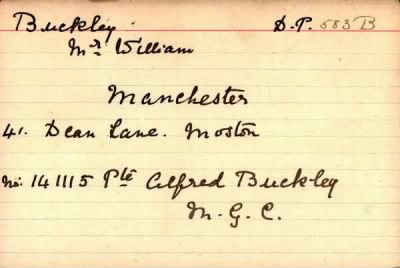 Buckley D.P. 583 B
Mr. William
Manchester
41. Dean Lane. Moston
No: 141115 Pte Alfred Buckley
M. G. C.